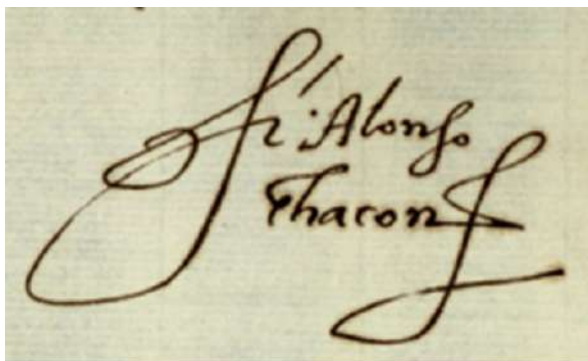 Fr. Alonso
Chacon